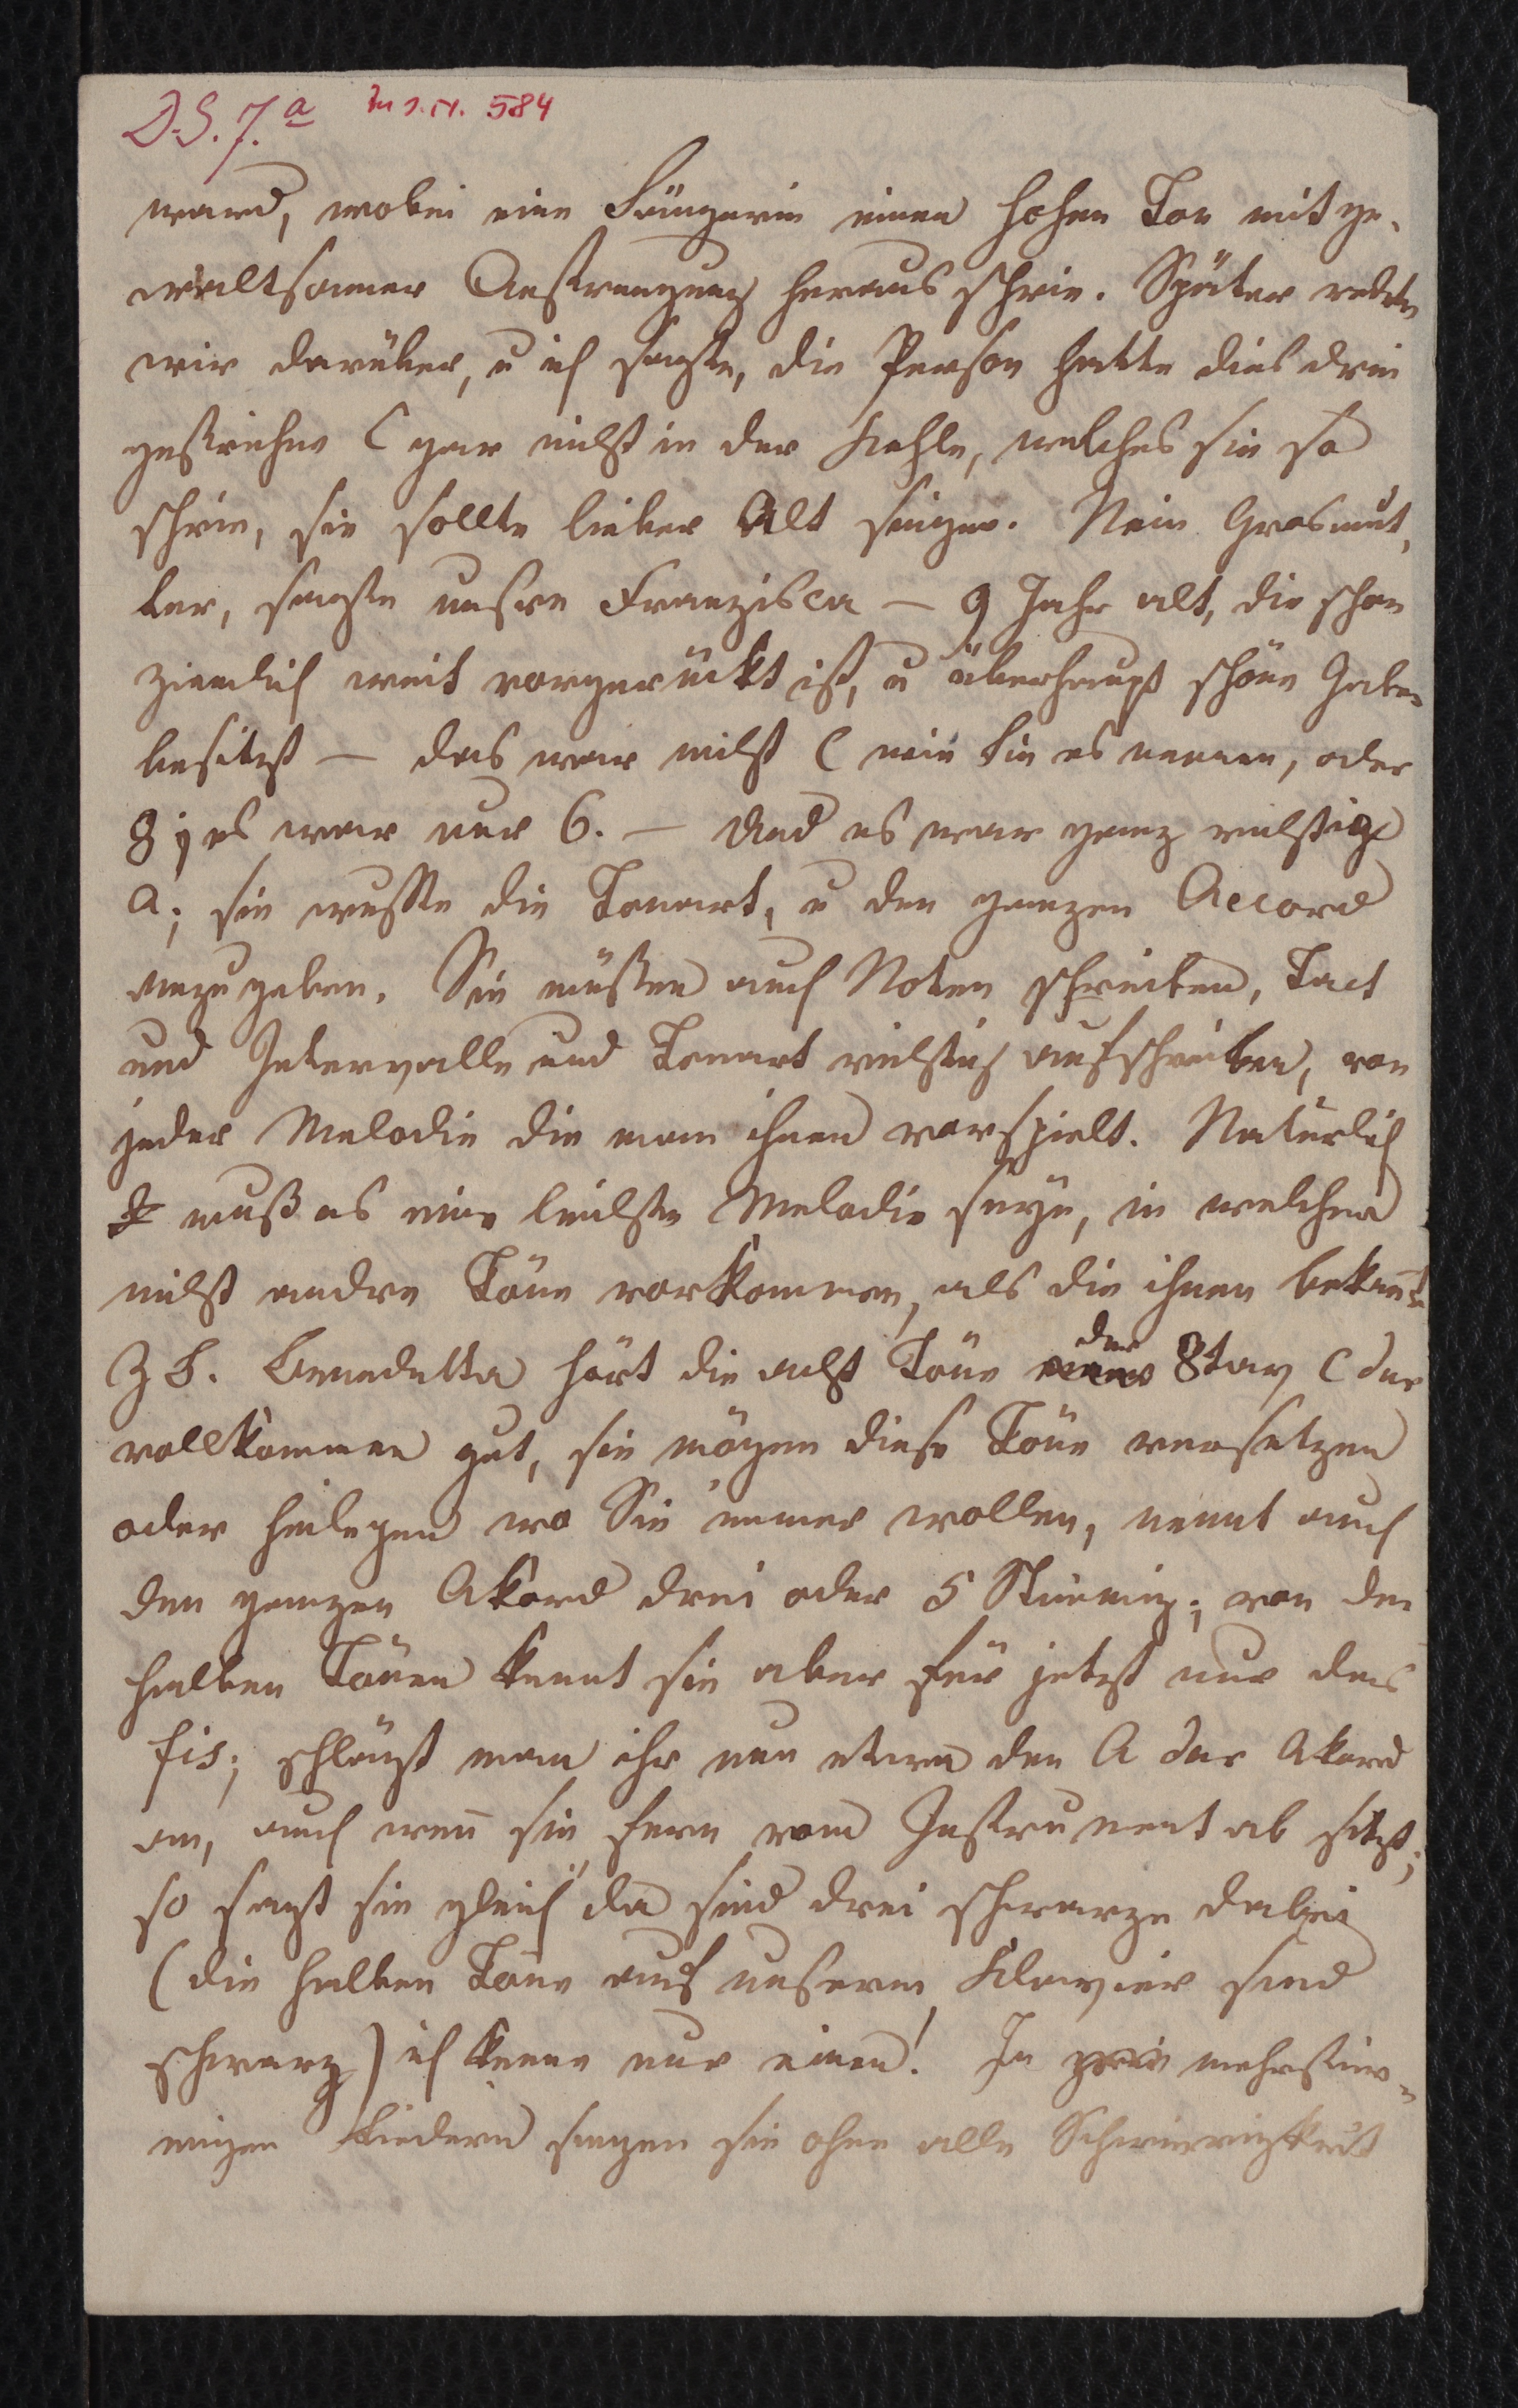 D.S. 7.a Zu J.N. 584
ward, wobei eine Sängerin einen hohen Ton mit ge-
waltsamer Anstrengung heraus schrie. Später redeten
wir darüber, u ich sagte, die Person hatte dies drei
gestrichne C gar nicht in der Kehle, welches sie so
schrie, sie sollte lieber Alt singen. Nein Grosmut,
ter, sagte unsre Franzisca – 9 Jahr alt, die schon
ziemlich weit vorgerückt ist, u überhaupt schöne Gaben
besitzt – das war nicht C wie Sie es nennen, oder
8, es war nur 6. – Und es war ganz richtig
a; sie wußte die Tonart, u den ganzen Accord
anzugeben. Sie müßen auch Noten schreiben, Tact
und Intervalle und Tonart richtig aufschreiben, von
jeder Melodie die man ihnen vorspielt. Natürlich
muß es eine leichte Melodie seyn, in welcher
nicht andre Töne vorkommen, als die ihnen bekannt
Z B. Benedetta hört die acht Töne einer der 8tav C dur
vollkommen gut, sie mögen diese Töne versetzen
oder hinlegen wo Sie immer wollen, nennt auch
den ganzen Akord drei oder 5 Stimmig; von den
halben Tönen kennt sie aber für jetzt nur das
fis; schlägt man ihr nun etwa den A dur Akord
an, auch wenn sie fern vom Instrument ab sitzt;
so sagt sie gleich „da sind drei schwarze dabei
(die halben Töne auf unserm Klavier sind
schwarz) ich kenne nur einen! In mehrstim-
migen Liedern singen sie ohne alle Schwierigkeit